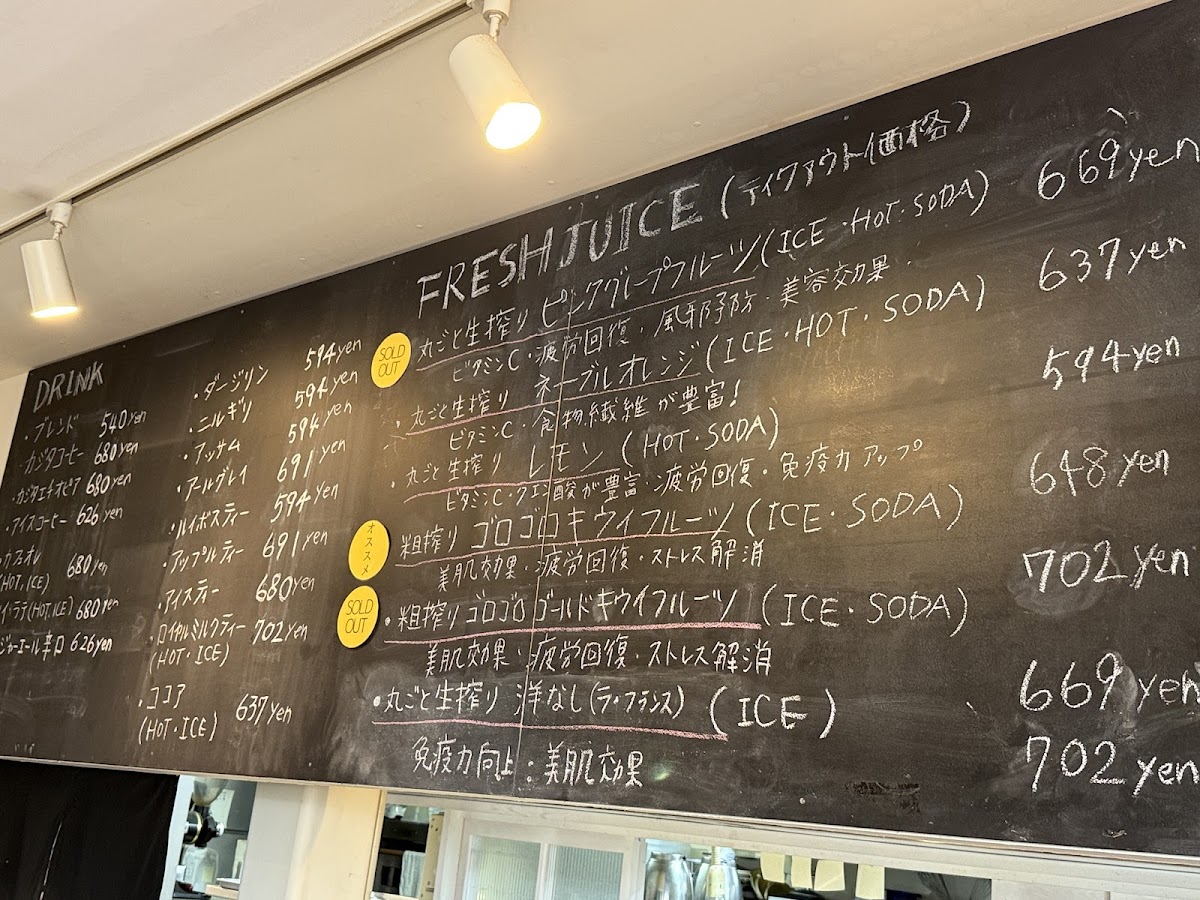 FRESH JUICE (テイクアウト価格)
SOLD OUT
丸ごと生搾り ピンクグレープフルーツ (ICE・HOT・SODA) 669yen
ビタミンC・疲労回復・風邪予防・美容効果
・丸ごと生搾り ネーブルオレンジ (ICE・HOT・SODA) 637yen
ビタミンC・食物繊維が豊富!
・丸ごと生搾り レモン (HOT・SODA) 594yen
ビタミンC・クエン酸が豊富・疲労回復・免疫力アップ
オススメ
粗搾り ゴロゴロキウイフルーツ (ICE・SODA) 648yen
美肌効果・疲労回復・ストレス解消
SOLD OUT
・粗搾り ゴロゴロゴールドキウイフルーツ (ICE・SODA) 702yen
美肌効果・疲労回復・ストレス解消
・丸ごと生搾り 洋なし(ラ・フランス) (ICE) 669yen
免疫力向上・美肌効果 702yen
DRINK
・ブレンド 540yen
・カジタコーヒー 680yen
・カジタエチオピア 680yen
・アイスコーヒー 626yen
・カフェオレ
(HOT,ICE) 680yen
ラテ(HOT,ICE) 680yen
ジャーエール辛口 626yen
・ダージリン 594yen
・ニルギリ 594yen
・アッサム 594yen
・アールグレイ 691yen
・ルイボスティー 594yen
・アップルティー 691yen
・アイスティー 680yen
・ロイヤルミルクティー 702yen
(HOT・ICE)
・ココア
(HOT・ICE) 637yen